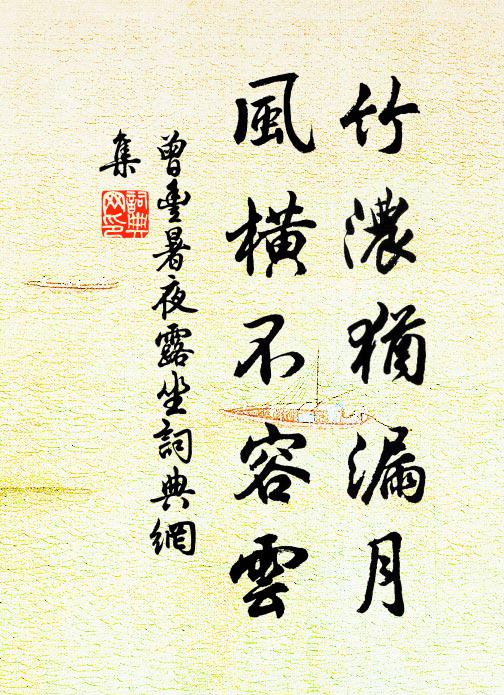 竹濃猶漏月
風橫不容雲
曾豐暑夜露坐詞典網
集
詞典網印